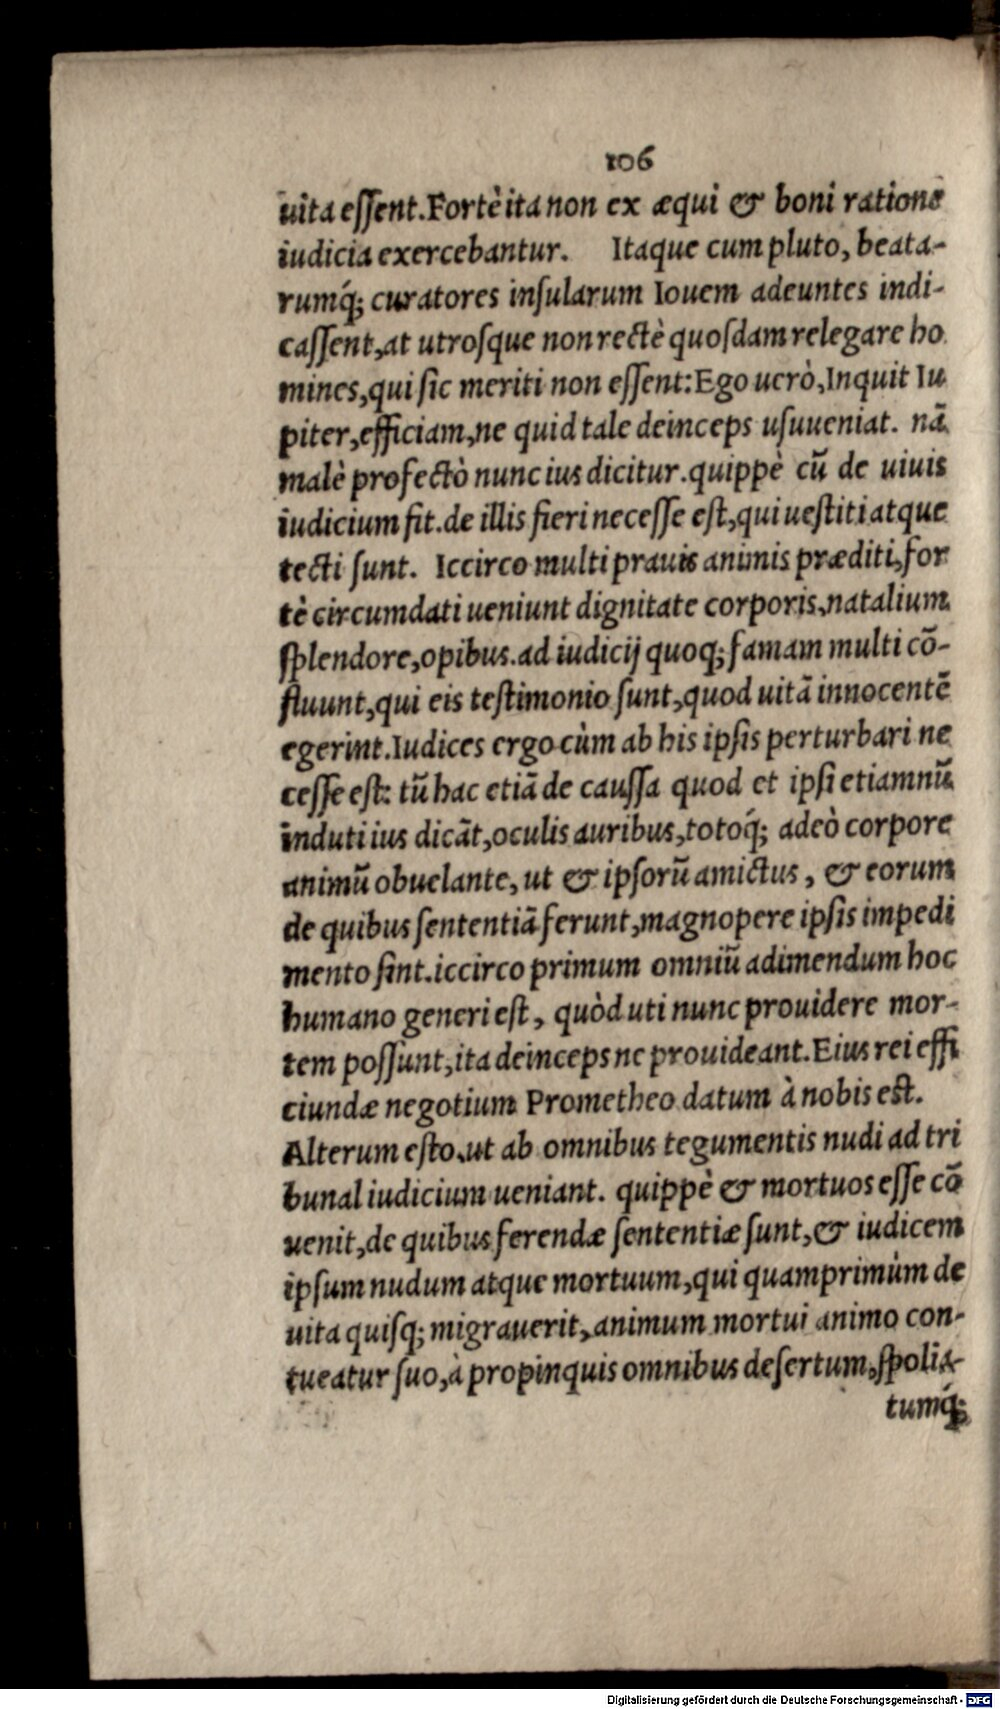 106
uita essent. Fortè ita non ex æqui & boni ratione
iudicia exercebantur. Itaque cum pluto, beata-
rumq́; curatores insularum Iouem adeuntes indi-
cassent, at utrosque non rectè quosdam relegare ho
mines, qui sic meriti non essent: Ego uerò, Inquit Iu
piter, efficiam, ne quid tale deinceps usuueniat. nã
malè profectò nunc ius dicitur. quippè cũ de uiuis
iudicium fit. de illis fieri necesse est, qui uestiti atque
tecti sunt. Iccirco multi prauis animis præditi, for
tè circumdati ueniunt dignitate corporis, natalium
splendore, opibus. ad iudicij quoq; famam multi cõ-
fluunt, qui eis testimonio sunt, quod uitã innocentẽ
egerint. Iudices ergo cùm ab his ipsis perturbari ne
cesse est: tũ hac etiã de caussa quod et ipsi etiamnũ
induti ius dicãt, oculis auribus, totoq́; adeò corpore
animũ obuelante, ut & ipsorũ amictus, & eorum
de quibus sententiã ferunt, magnopere ipsis impedi
mento sint. iccirco primum omniũ adimendum hoc
humano generi est, quòd uti nunc prouidere mor-
tem possunt, ita deinceps ne prouideant. Eius rei effi
ciundæ negotium Prometheo datum à nobis est.
Alterum esto, ut ab omnibus tegumentis nudi ad tri
bunal iudicium ueniant. quippè & mortuos esse cõ
uenit, de quibus ferendæ sententiæ sunt, & iudicem
ipsum nudum atque mortuum, qui quamprimùm de
uita quisq; migrauerit, animum mortui animo con-
tueatur suo, à propinquis omnibus desertum, spolia-
tumq́;
Digitalisierung gefördert durch die Deutsche Forschungsgemeinschaft - DFG